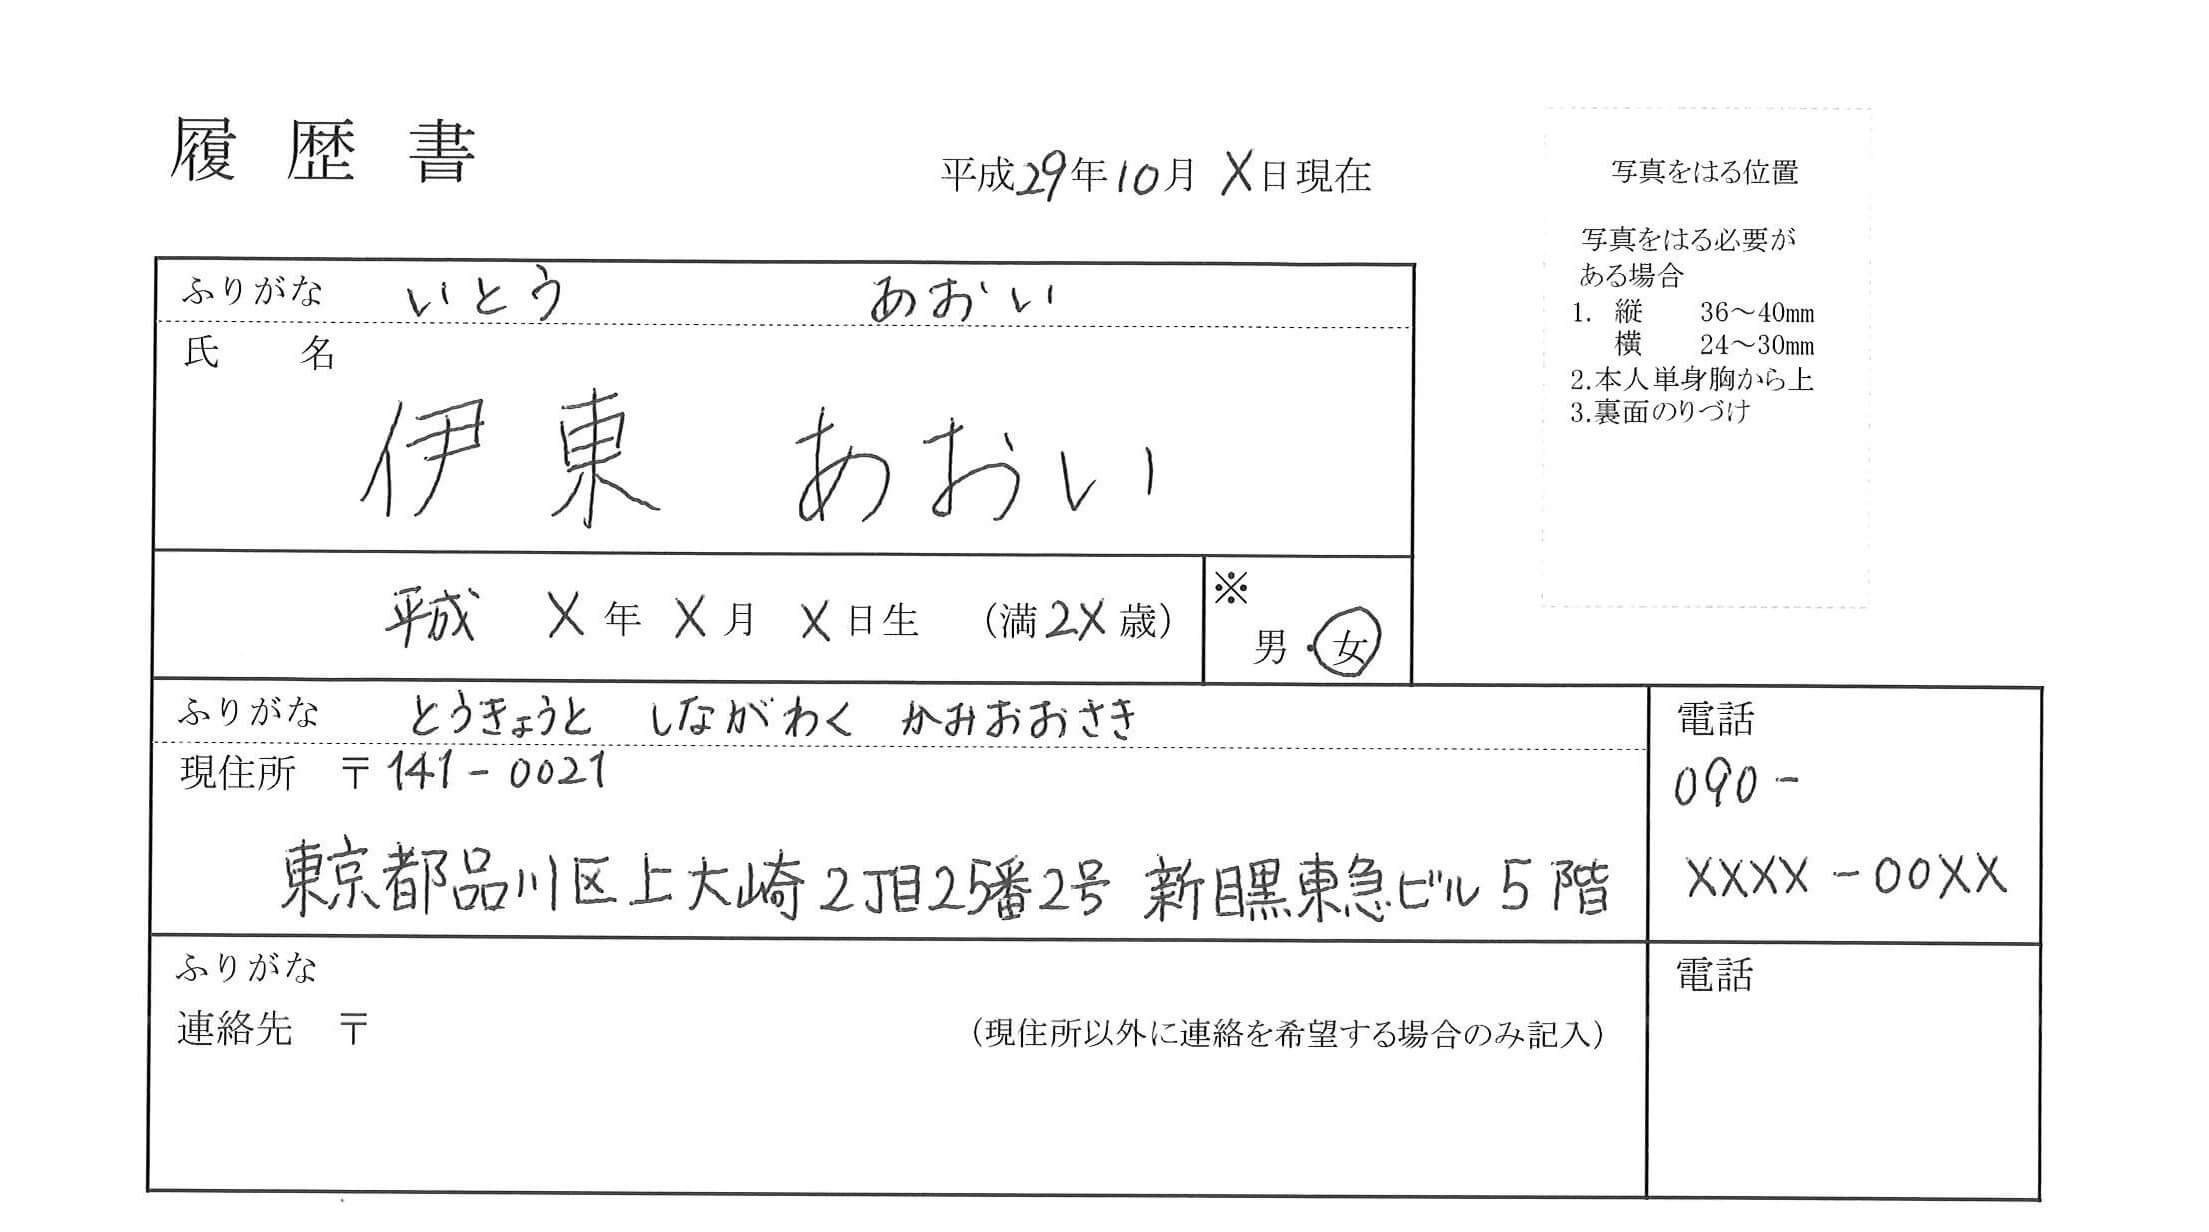 履歴書
平成29年10月X日現在
写真をはる位置
写真をはる必要が
ある場合
1. 縦 36～40mm
横 24～30mm
2.本人単身胸から上
3.裏面のりづけ
ふりがな いとう あおい
氏 名
伊東 あおい
平成 X年 X月 X日生 (満2X歳)
※
男・女
ふりがな とうきょうと しながわく かみおおさき
電話
現住所 〒141-0021
090-
東京都品川区上大崎2丁目25番2号 新目黒東急ビル5階
XXXX-00XX
ふりがな
電話
連絡先 〒
(現住所以外に連絡を希望する場合のみ記入)